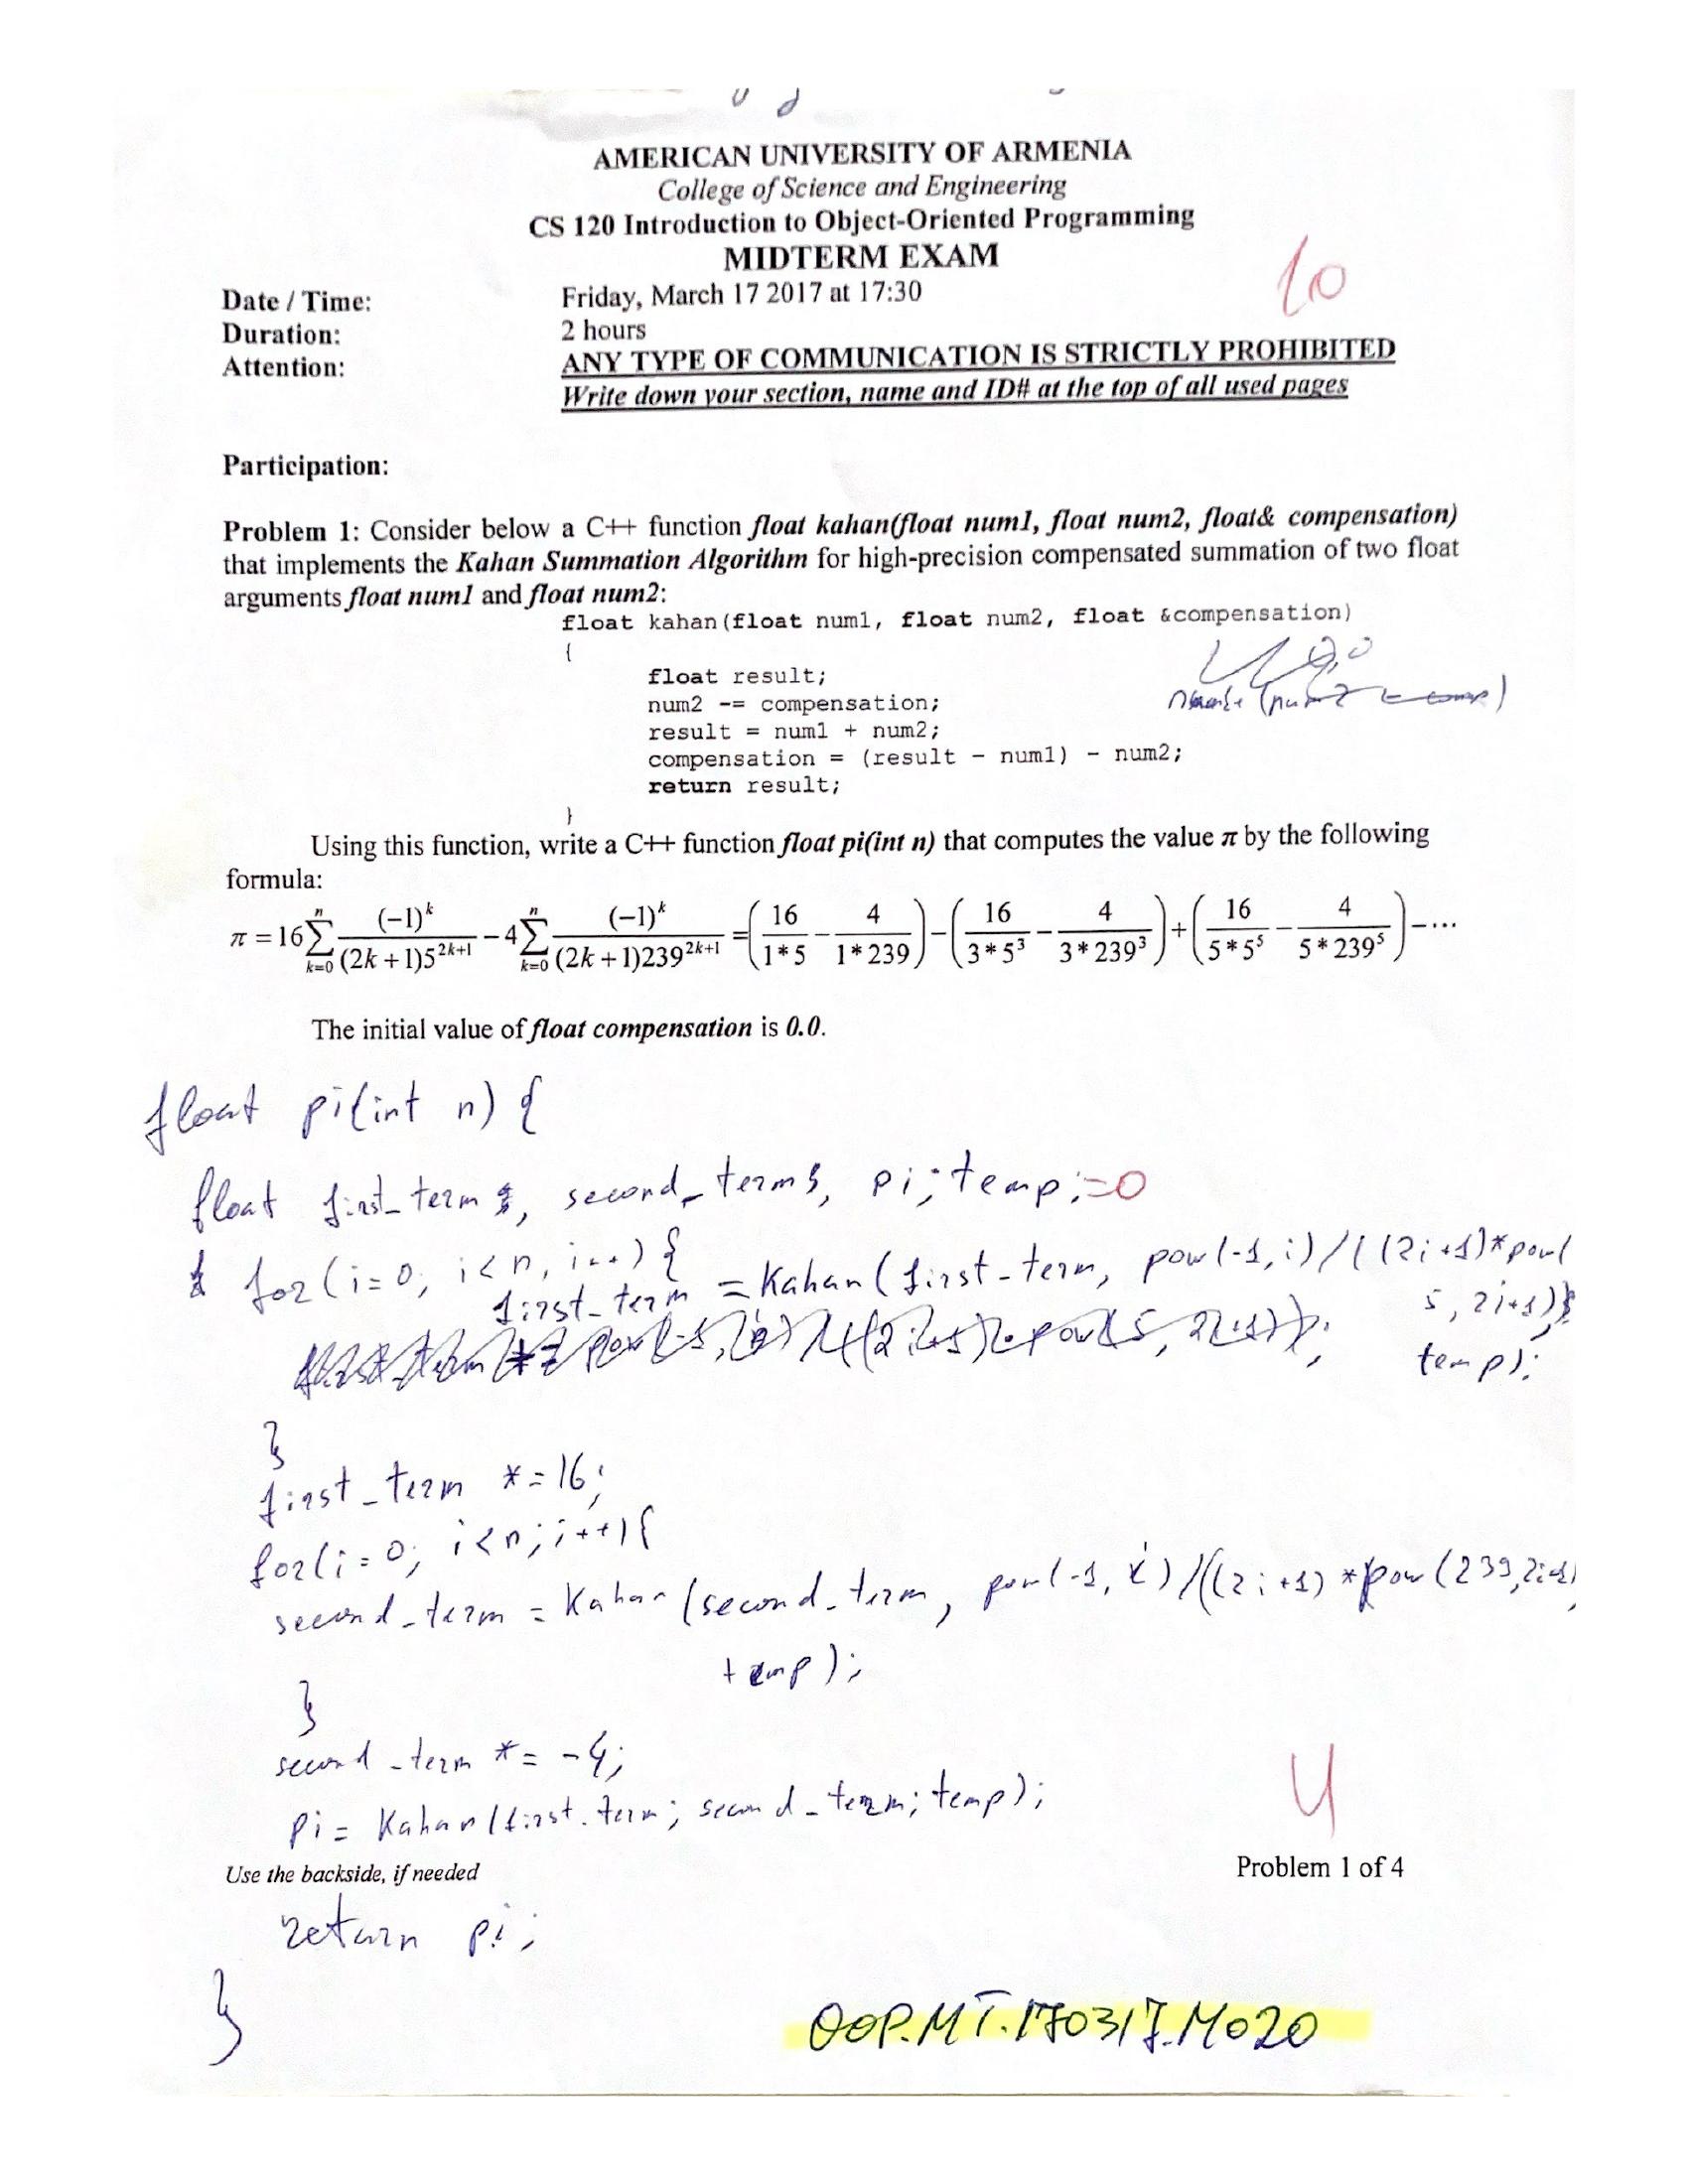 AMERICAN UNIVERSITY OF ARMENIA
College of Science and Engineering
CS 120 Introduction to Object-Oriented Programming
MIDTERM EXAM
10
Date / Time: Friday, March 17 2017 at 17:30
Duration: 2 hours
Attention: ANY TYPE OF COMMUNICATION IS STRICTLY PROHIBITED
Write down your section, name and ID# at the top of all used pages
Participation:
Problem 1: Consider below a C++ function float kahan(float num1, float num2, float& compensation)
that implements the Kahan Summation Algorithm for high-precision compensated summation of two float
arguments float num1 and float num2:
float kahan(float num1, float num2, float &compensation)
{
float result;
num2 -= compensation;
result = num1 + num2;
compensation = (result - num1) - num2;
return result;
}
Using this function, write a C++ function float pi(int n) that computes the value π by the following
formula:
π = 16 ∑_{k=0}^{n} (-1)^k / ((2k+1)5^{2k+1}) - 4 ∑_{k=0}^{n} (-1)^k / ((2k+1)239^{2k+1}) = (16/(1*5) - 4/(1*239)) - (16/(3*5^3) - 4/(3*239^3)) + (16/(5*5^5) - 4/(5*239^5)) - ...
The initial value of float compensation is 0.0.
float pi(int n) {
float first_term, second_term, pi; temp;=0
for (i=0, i<n, i++) {
first_term = Kahan (first_term, pow(-1,i)/((2i+1)*pow(
5, 2i+1)),
temp);
}
first_term *= 16;
for(i=0; i<n; i++){
second_term = Kahan (second_term, pow(-1, i)/((2i+1)*pow(239,2i+1)
temp);
}
second_term *= -4;
pi = Kahan(first_term; second_term; temp);
4
Use the backside, if needed Problem 1 of 4
return pi;
}
OOP.MT.170317.M020